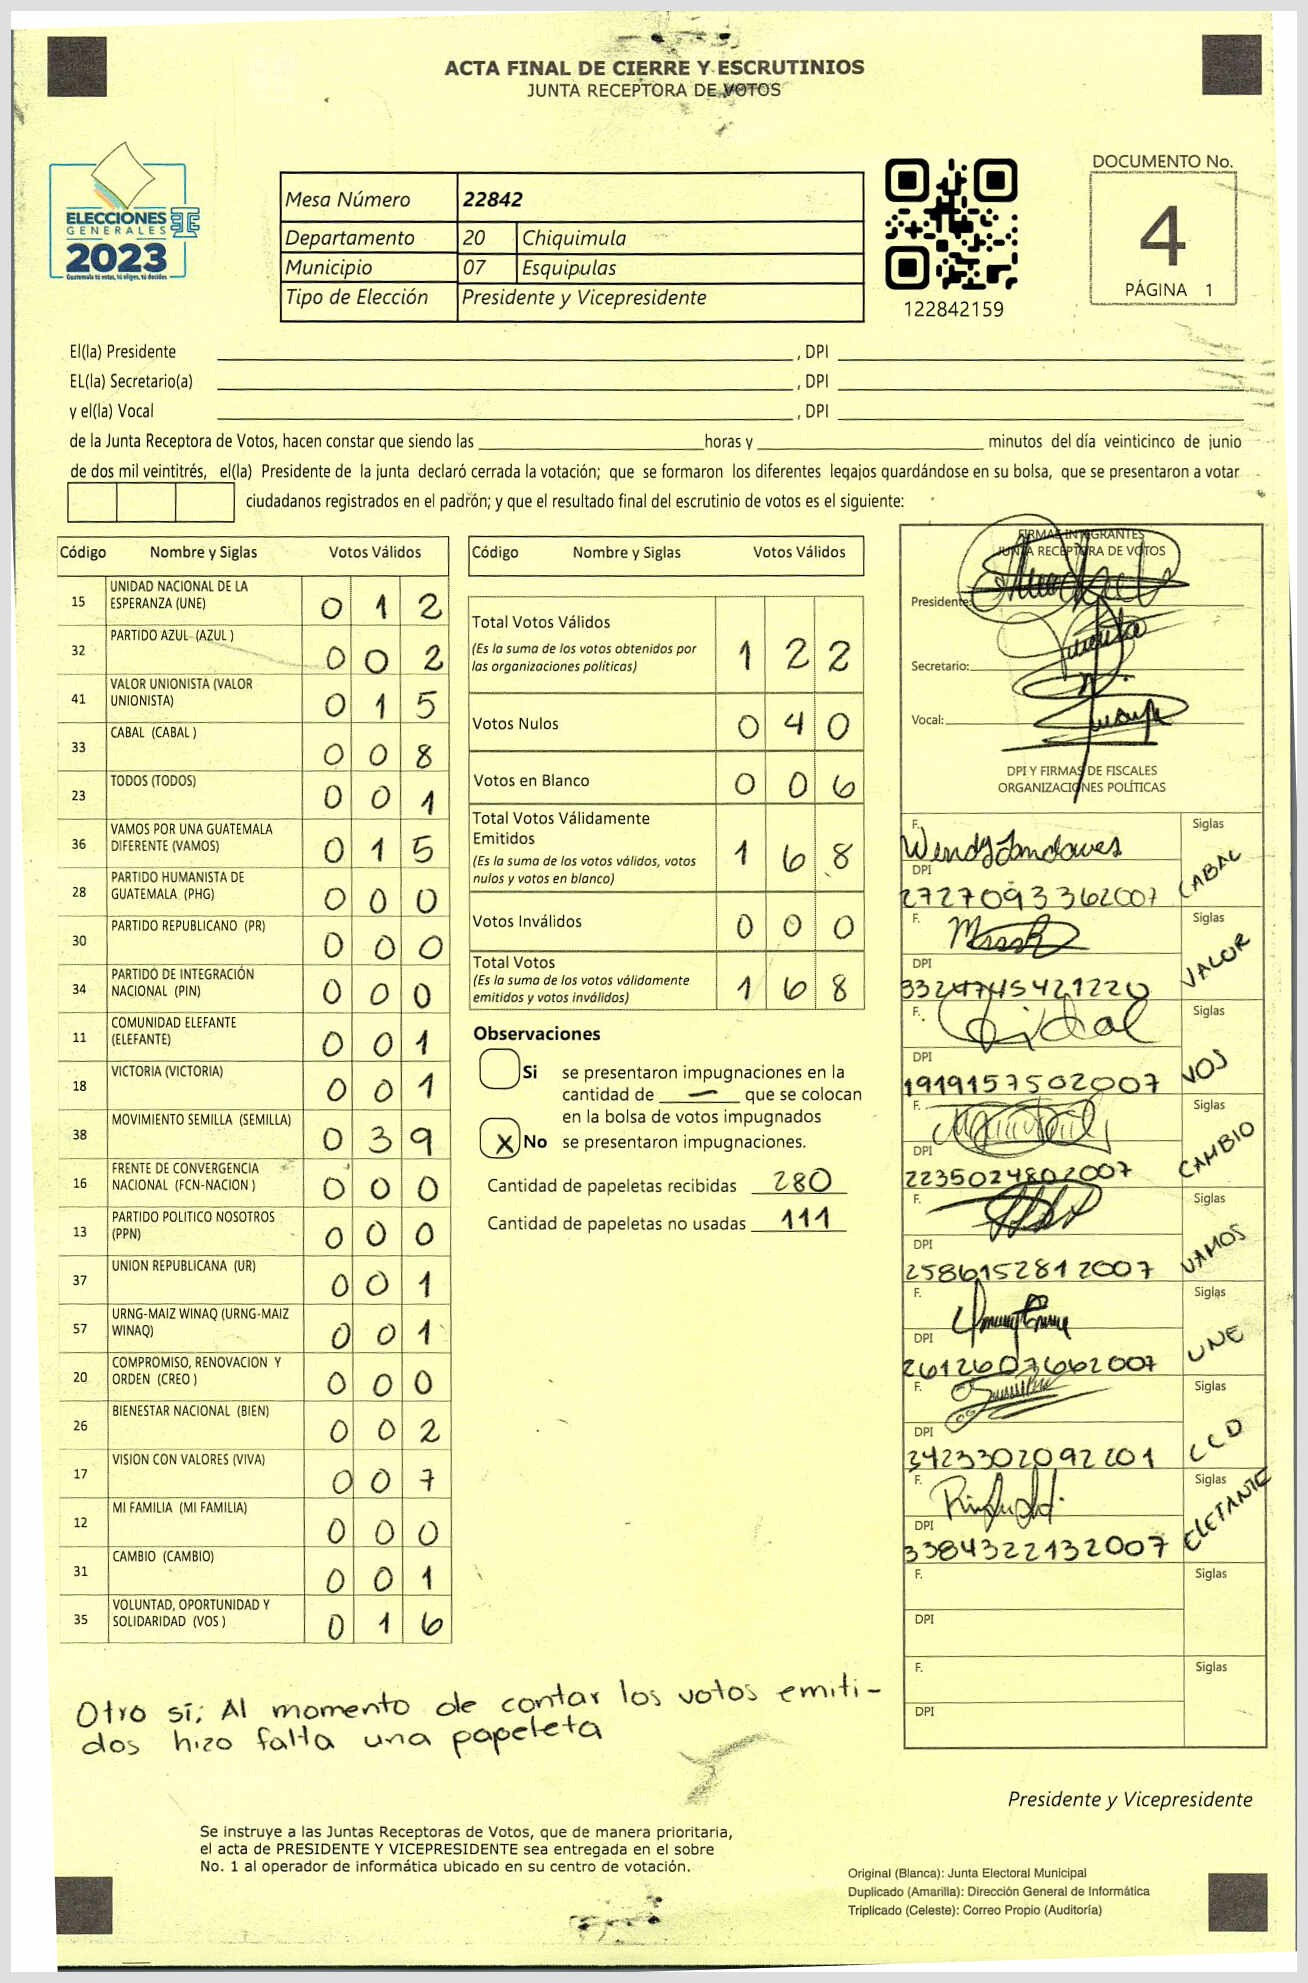 ACTA FINAL DE CIERRE Y ESCRUTINIOS
JUNTA RECEPTORA DE VOTOS
ELECCIONES
GENERALES
2023
Guatemala tú votas, tú eliges, tú decides
Mesa Número 22842
Departamento 20 Chiquimula
Municipio 07 Esquipulas
Tipo de Elección Presidente y Vicepresidente
122842159
DOCUMENTO No.
4
PÁGINA 1
El(la) Presidente , DPI
EL(la) Secretario(a) , DPI
y el(la) Vocal , DPI
de la Junta Receptora de Votos, hacen constar que siendo las horas y minutos del día veinticinco de junio
de dos mil veintitrés, el(la) Presidente de la junta declaró cerrada la votación; que se formaron los diferentes legajos guardándose en su bolsa, que se presentaron a votar
ciudadanos registrados en el padrón; y que el resultado final del escrutinio de votos es el siguiente:
Código Nombre y Siglas Votos Válidos
15 UNIDAD NACIONAL DE LA
ESPERANZA (UNE) 0 1 2
32 PARTIDO AZUL (AZUL ) 0 0 2
41 VALOR UNIONISTA (VALOR
UNIONISTA) 0 1 5
33 CABAL (CABAL ) 0 0 8
23 TODOS (TODOS) 0 0 1
36 VAMOS POR UNA GUATEMALA
DIFERENTE (VAMOS) 0 1 5
28 PARTIDO HUMANISTA DE
GUATEMALA (PHG) 0 0 0
30 PARTIDO REPUBLICANO (PR) 0 0 0
34 PARTIDO DE INTEGRACIÓN
NACIONAL (PIN) 0 0 0
11 COMUNIDAD ELEFANTE
(ELEFANTE) 0 0 1
18 VICTORIA (VICTORIA) 0 0 1
38 MOVIMIENTO SEMILLA (SEMILLA) 0 3 9
16 FRENTE DE CONVERGENCIA
NACIONAL (FCN-NACION ) 0 0 0
13 PARTIDO POLITICO NOSOTROS
(PPN) 0 0 0
37 UNION REPUBLICANA (UR) 0 0 1
57 URNG-MAIZ WINAQ (URNG-MAIZ
WINAQ) 0 0 1
20 COMPROMISO, RENOVACION Y
ORDEN (CREO ) 0 0 0
26 BIENESTAR NACIONAL (BIEN) 0 0 2
17 VISION CON VALORES (VIVA) 0 0 7
12 MI FAMILIA (MI FAMILIA) 0 0 0
31 CAMBIO (CAMBIO) 0 0 1
35 VOLUNTAD, OPORTUNIDAD Y
SOLIDARIDAD (VOS ) 0 1 6
Código Nombre y Siglas Votos Válidos
Total Votos Válidos
(Es la suma de los votos obtenidos por
las organizaciones políticas) 1 2 2
Votos Nulos 0 4 0
Votos en Blanco 0 0 6
Total Votos Válidamente
Emitidos
(Es la suma de los votos válidos, votos
nulos y votos en blanco) 1 6 8
Votos Inválidos 0 0 0
Total Votos
(Es la suma de los votos válidamente
emitidos y votos inválidos) 1 6 8
Observaciones
Si se presentaron impugnaciones en la
cantidad de — que se colocan
en la bolsa de votos impugnados
X No se presentaron impugnaciones.
Cantidad de papeletas recibidas 280
Cantidad de papeletas no usadas 111
FIRMAS INTEGRANTES
JUNTA RECEPTORA DE VOTOS
Presidente:
Secretario:
Vocal:
DPI Y FIRMAS DE FISCALES
ORGANIZACIONES POLÍTICAS
F. Wendy Siglas
DPI CABAL
2727093362007
F. Siglas
DPI VALOR
3324745421220
F. Siglas
DPI VOS
1919157502007
F. Siglas
DPI CAMBIO
2235024802007
F. Siglas
DPI VAMOS
2586152812007
F. Siglas
DPI UNE
2612607662007
F. Siglas
DPI CCD
3423302092201
F. Siglas
DPI ELEFANTE
3384322132007
F. Siglas
DPI
F. Siglas
DPI
Otro sí; Al momento de contar los votos emiti-
dos hizo falta una papeleta
Presidente y Vicepresidente
Se instruye a las Juntas Receptoras de Votos, que de manera prioritaria,
el acta de PRESIDENTE Y VICEPRESIDENTE sea entregada en el sobre
No. 1 al operador de informática ubicado en su centro de votación.
Original (Blanca): Junta Electoral Municipal
Duplicado (Amarilla): Dirección General de Informática
Triplicado (Celeste): Correo Propio (Auditoría)